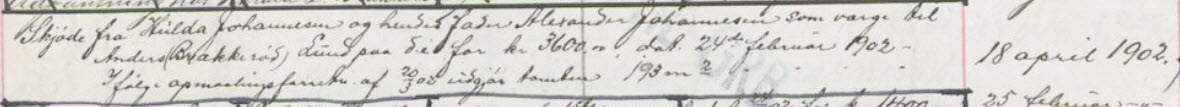 Skjöde fra Hulda Johannesen og hendes fader Alexander Johannesen som værge til
Anders (Brakkerød) Lund paa d.e. for kr 3600,00 dat. 24de februar 1902 - 18 april 1902.
Ifølge opmaalingsforretn. af 20/3 02 udgjør tomten 193 m2
25 februar